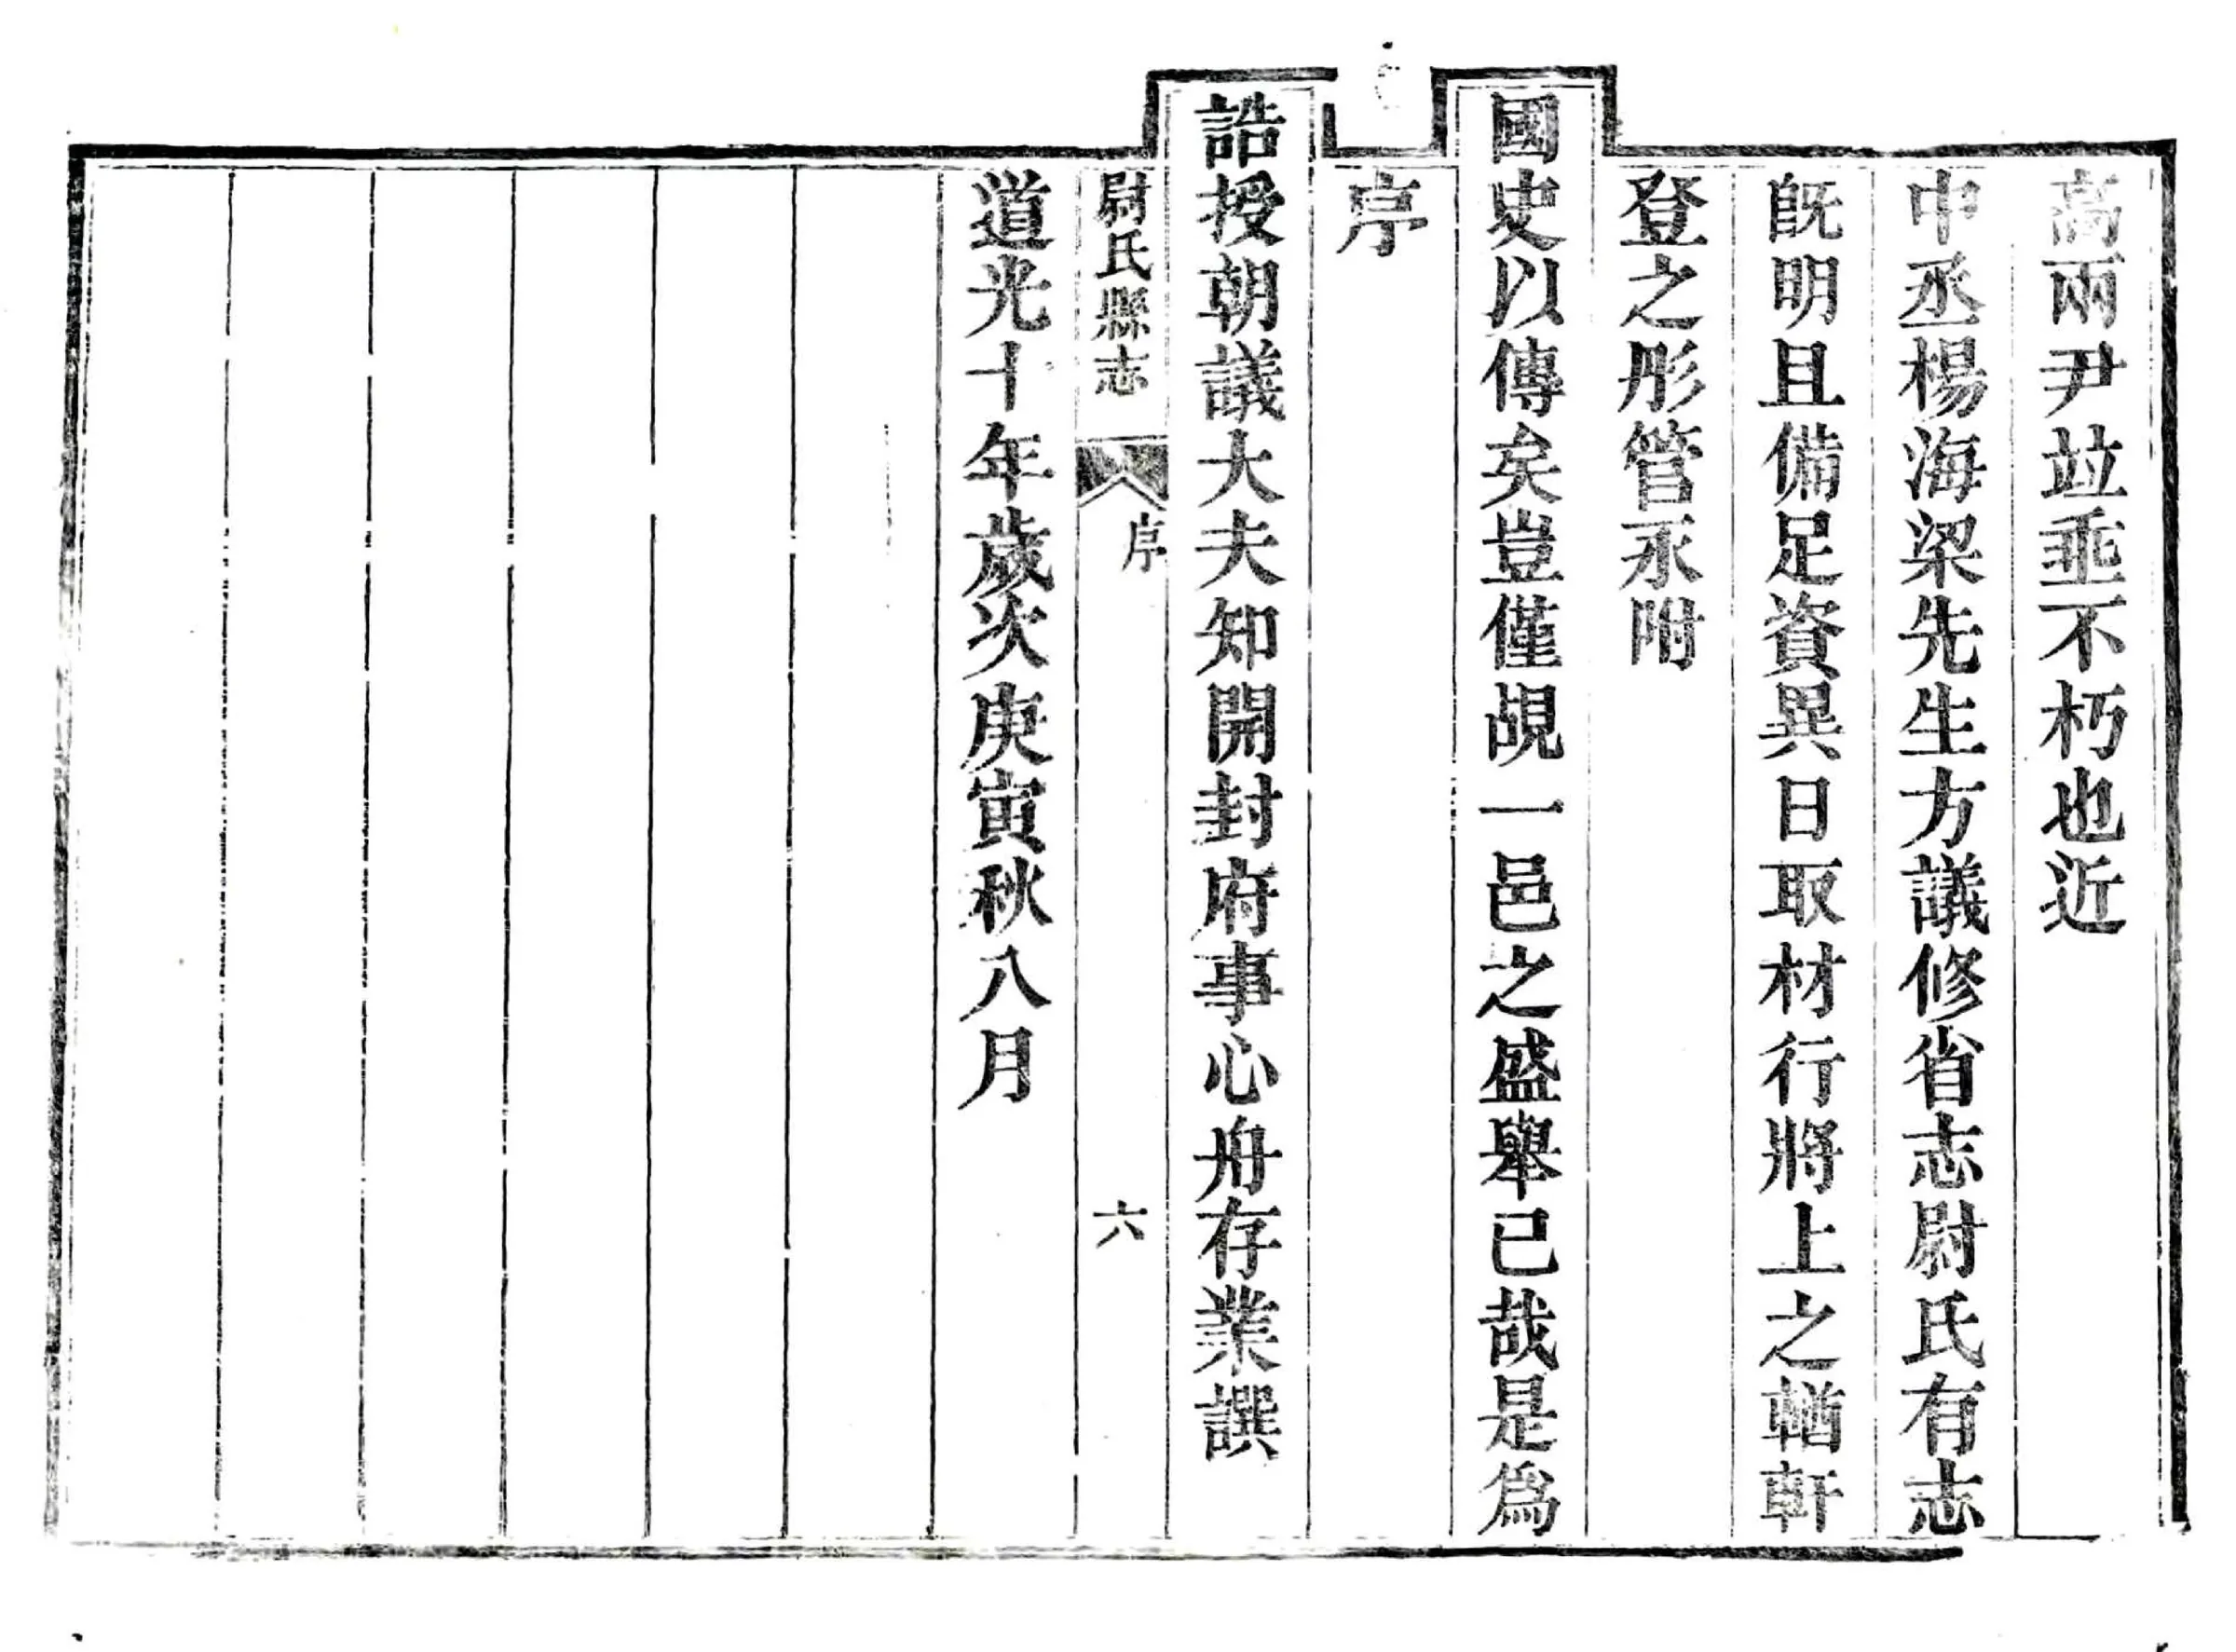 高兩尹竝垂不朽也近
中丞楊海梁先生方議修省志尉氏有志
既明且備足資異日取材行將上之輶軒
登之彤管永附
國史以傳矣豈僅覘一邑之盛舉已哉是為
序
誥授朝議大夫知開封府事心舟存業譔
尉氏縣志 序 六
道光十年歲次庚寅秋八月